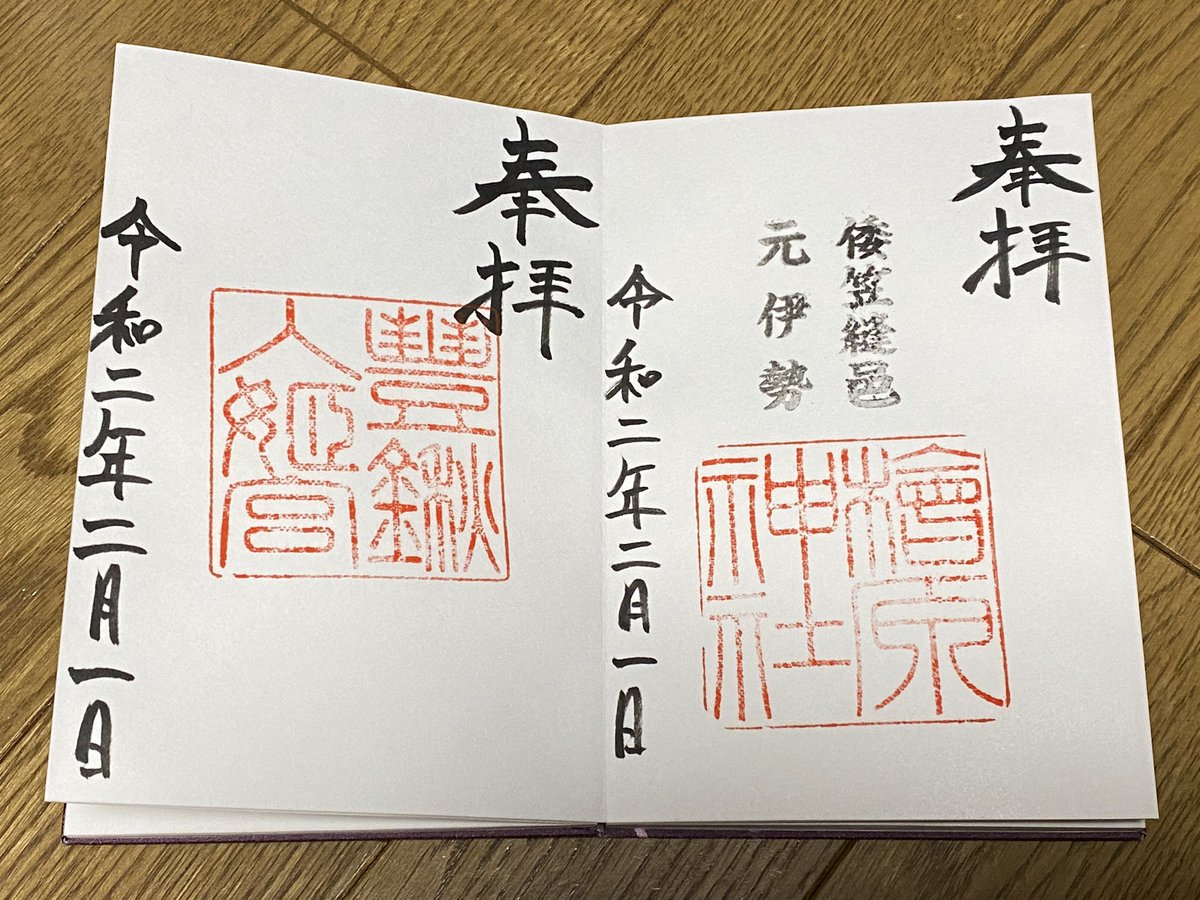 奉拝
倭笠縫邑
元伊勢
檜原
神社
令和二年二月一日
奉拝
豐鍬
入姫宮
令和二年二月一日